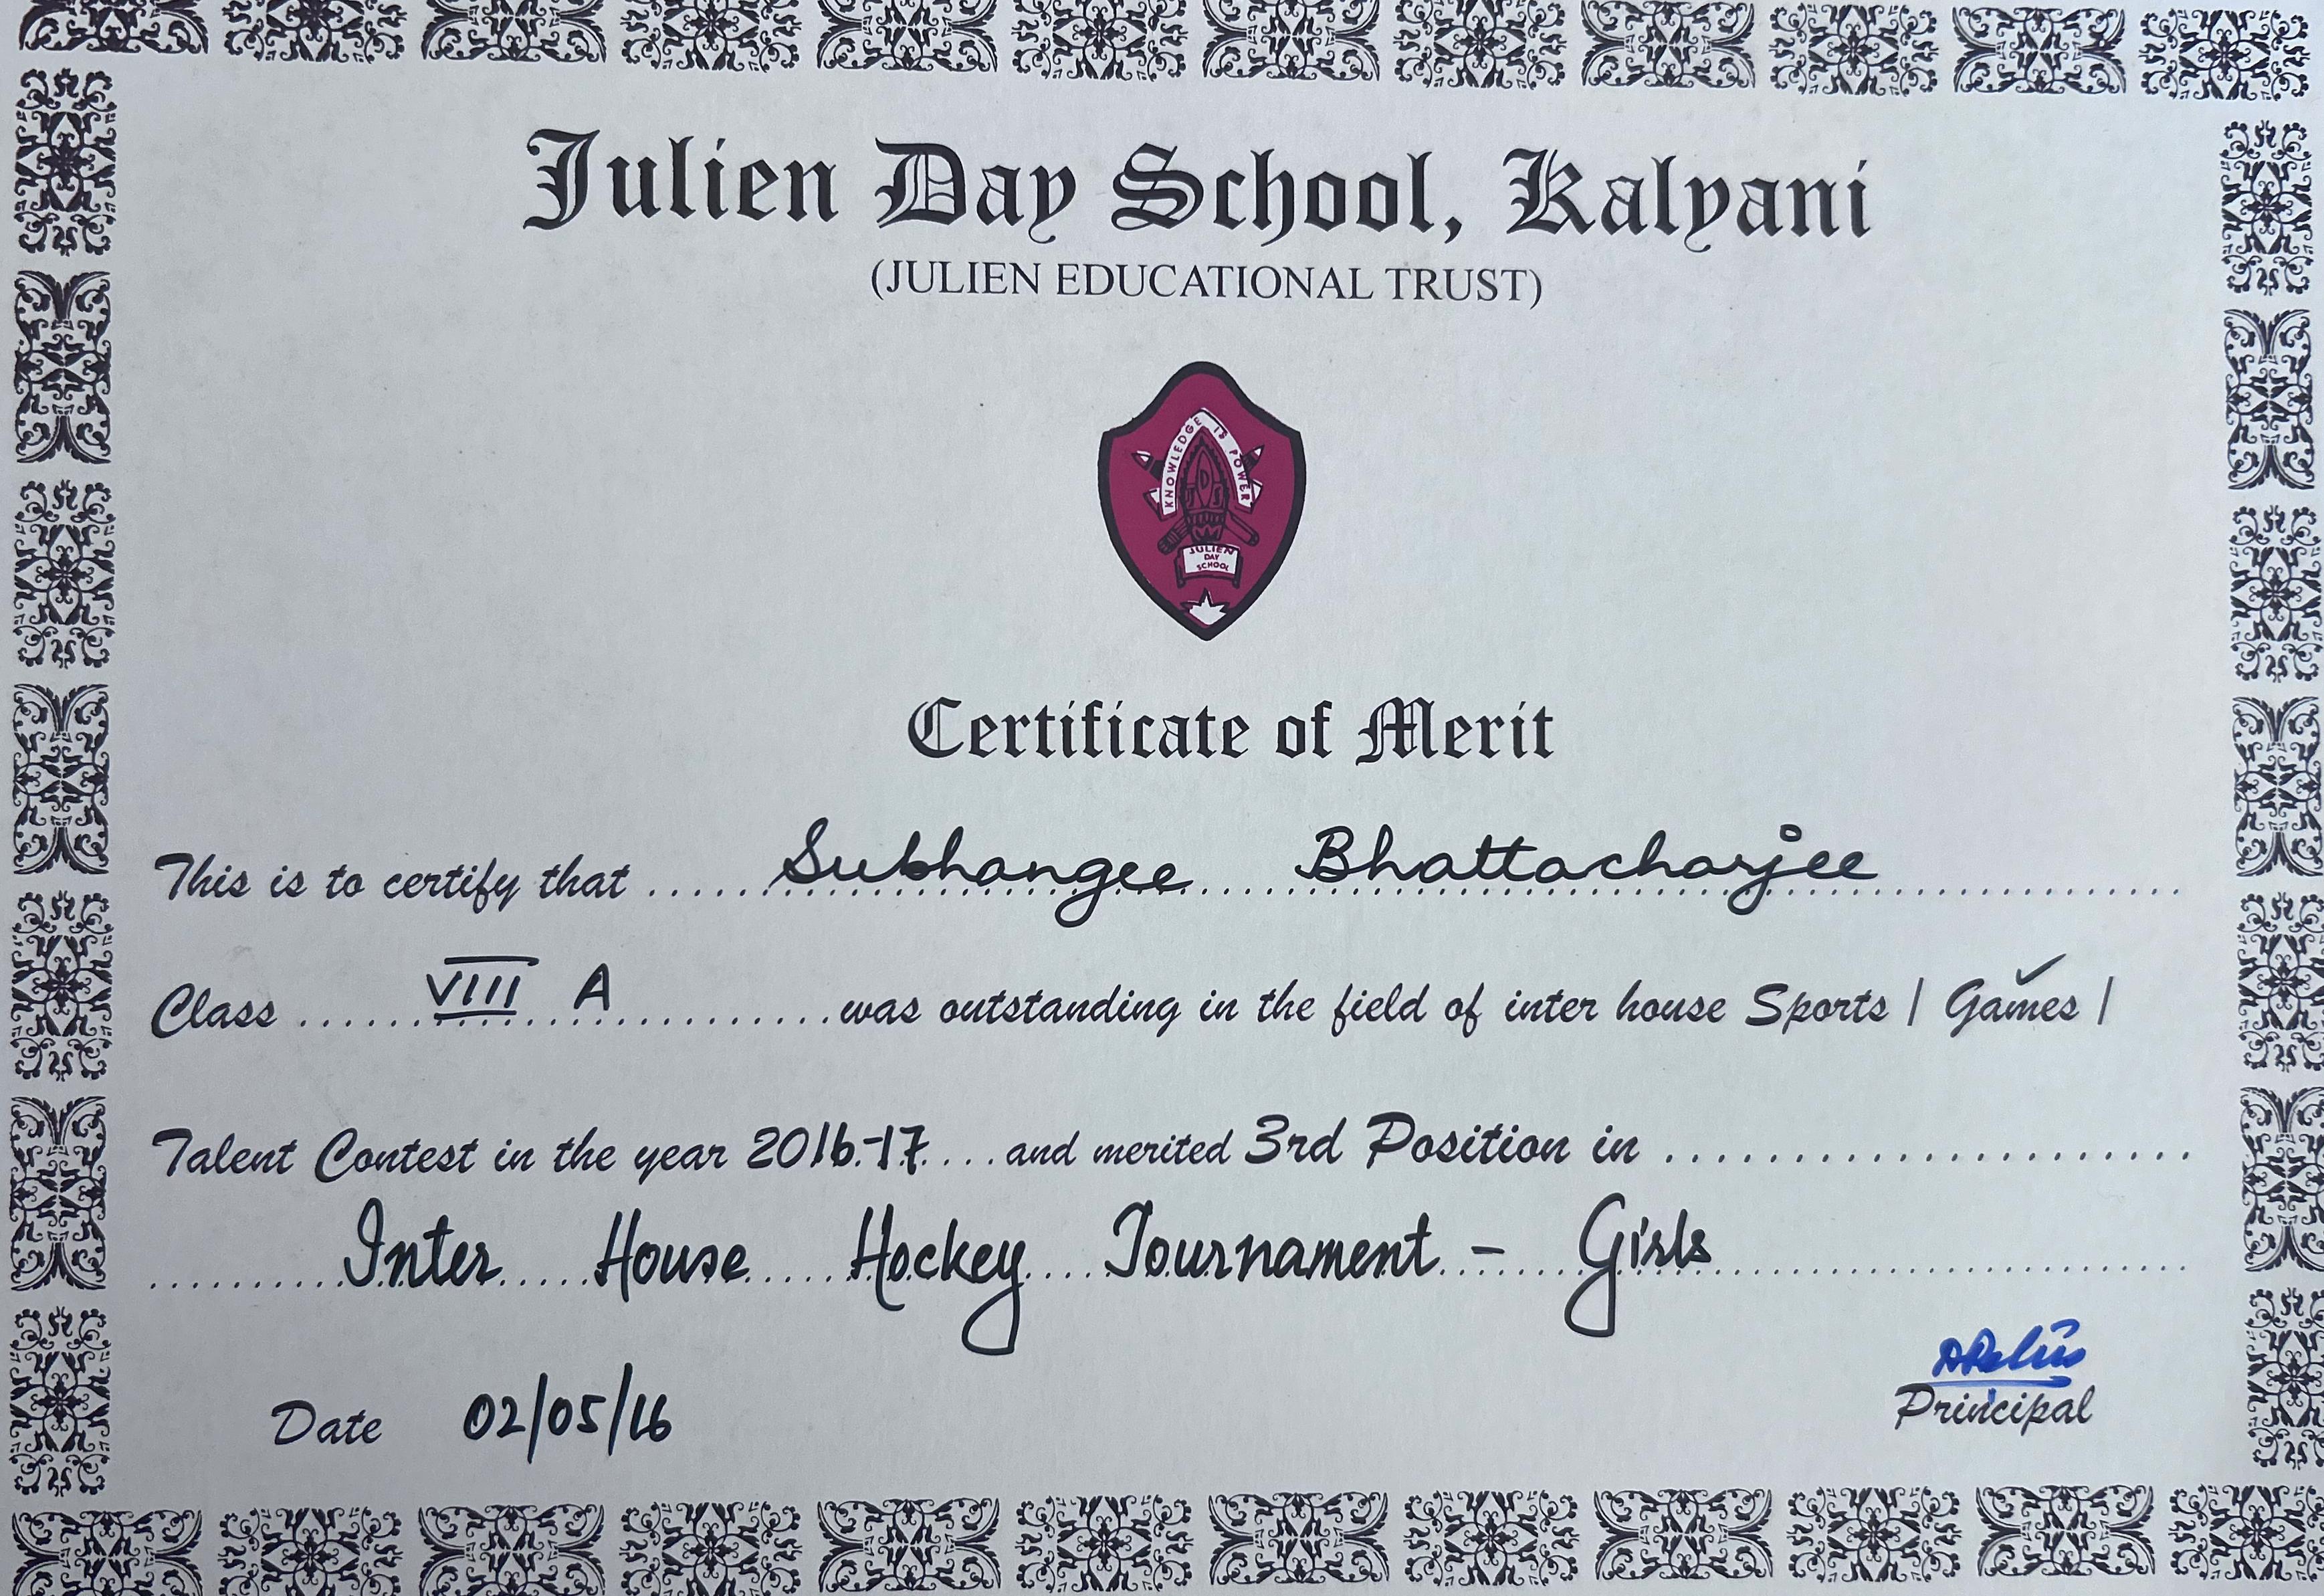 Julien Day School, Kalyani
(JULIEN EDUCATIONAL TRUST)
KNOWLEDGE IS POWER
JDS
JULIEN
DAY
SCHOOL
Certificate of Merit
This is to certify that ..... Subhangee Bhattacharjee .....
Class ..... VIII A ..... was outstanding in the field of inter house Sports / Games /
Talent Contest in the year 2016-17 .... and merited 3rd Position in .....
Inter House Hockey Tournament - Girls
Principal
Date 02/05/16